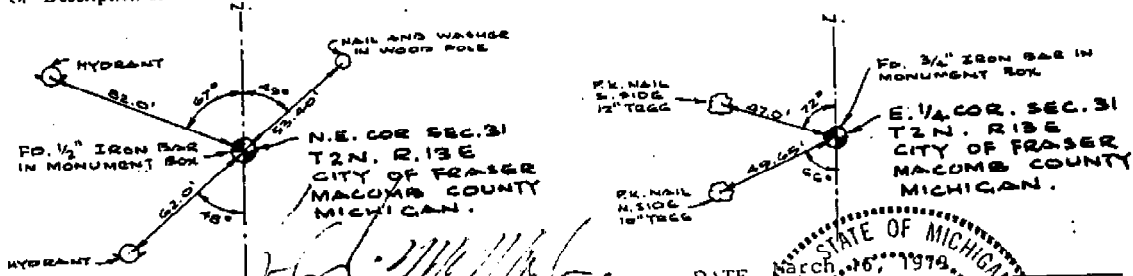 N.
HYDRANT
NAIL AND WASHER
IN WOOD POLE
82.0'
67°
53.40'
FD. 1/2" IRON BAR
IN MONUMENT BOX
N.E. COR SEC. 31
T2N. R.13E
CITY OF FRASER
MACOMB COUNTY
MICHIGAN.
62.0'
HYDRANT
N.
FD. 3/4" IRON BAR IN
MONUMENT BOX
P.K. NAIL
S. SIDE
12" TREE
47.0'
72°
E. 1/4 COR. SEC. 31
T2N. R13E
CITY OF FRASER
MACOMB COUNTY
MICHIGAN.
49.65'
66°
P.K. NAIL
N. SIDE
10" TREE
STATE OF MICHIGAN
DATE March 16, 1979